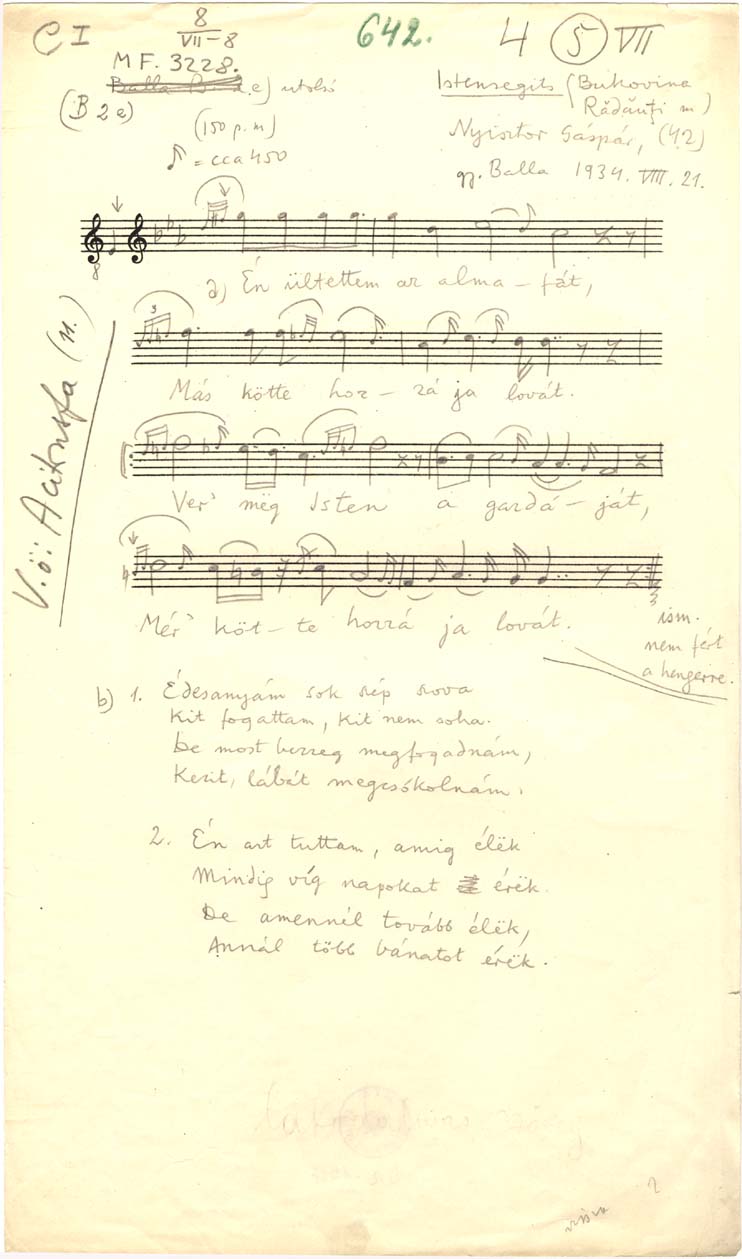 C I
8
VII-8
642.
4 (5) VII
MF. 3228.
utolsó
(B 2 e)
Istensegits (Bukovina
Rădăuți m)
(150 p. m)
Nyisztor Gáspár, (42)
= cca 450
gy. Balla 1934. VIII. 21.
8
a) Én ültettem az alma – fát,
3
Más kötte hoz – zá ja lovát.
Ver' mëg Isten a gazdá – ját,
Mér' köt – te hozzá ja lovát.
ism.
nem fért
a hengerre.
V.ö.: A citrusfa (n.)
b) 1. Édesanyám sok szép szova
Kit fogattam, kit nem soha.
De most bezzeg megfogadnám,
Kezit, lábát megcsókolnám.
2. Én azt tuttam, amig élëk
Mindig víg napokat érëk.
De amennél tovább élëk,
Annál több bánatot érëk.
vissza
2